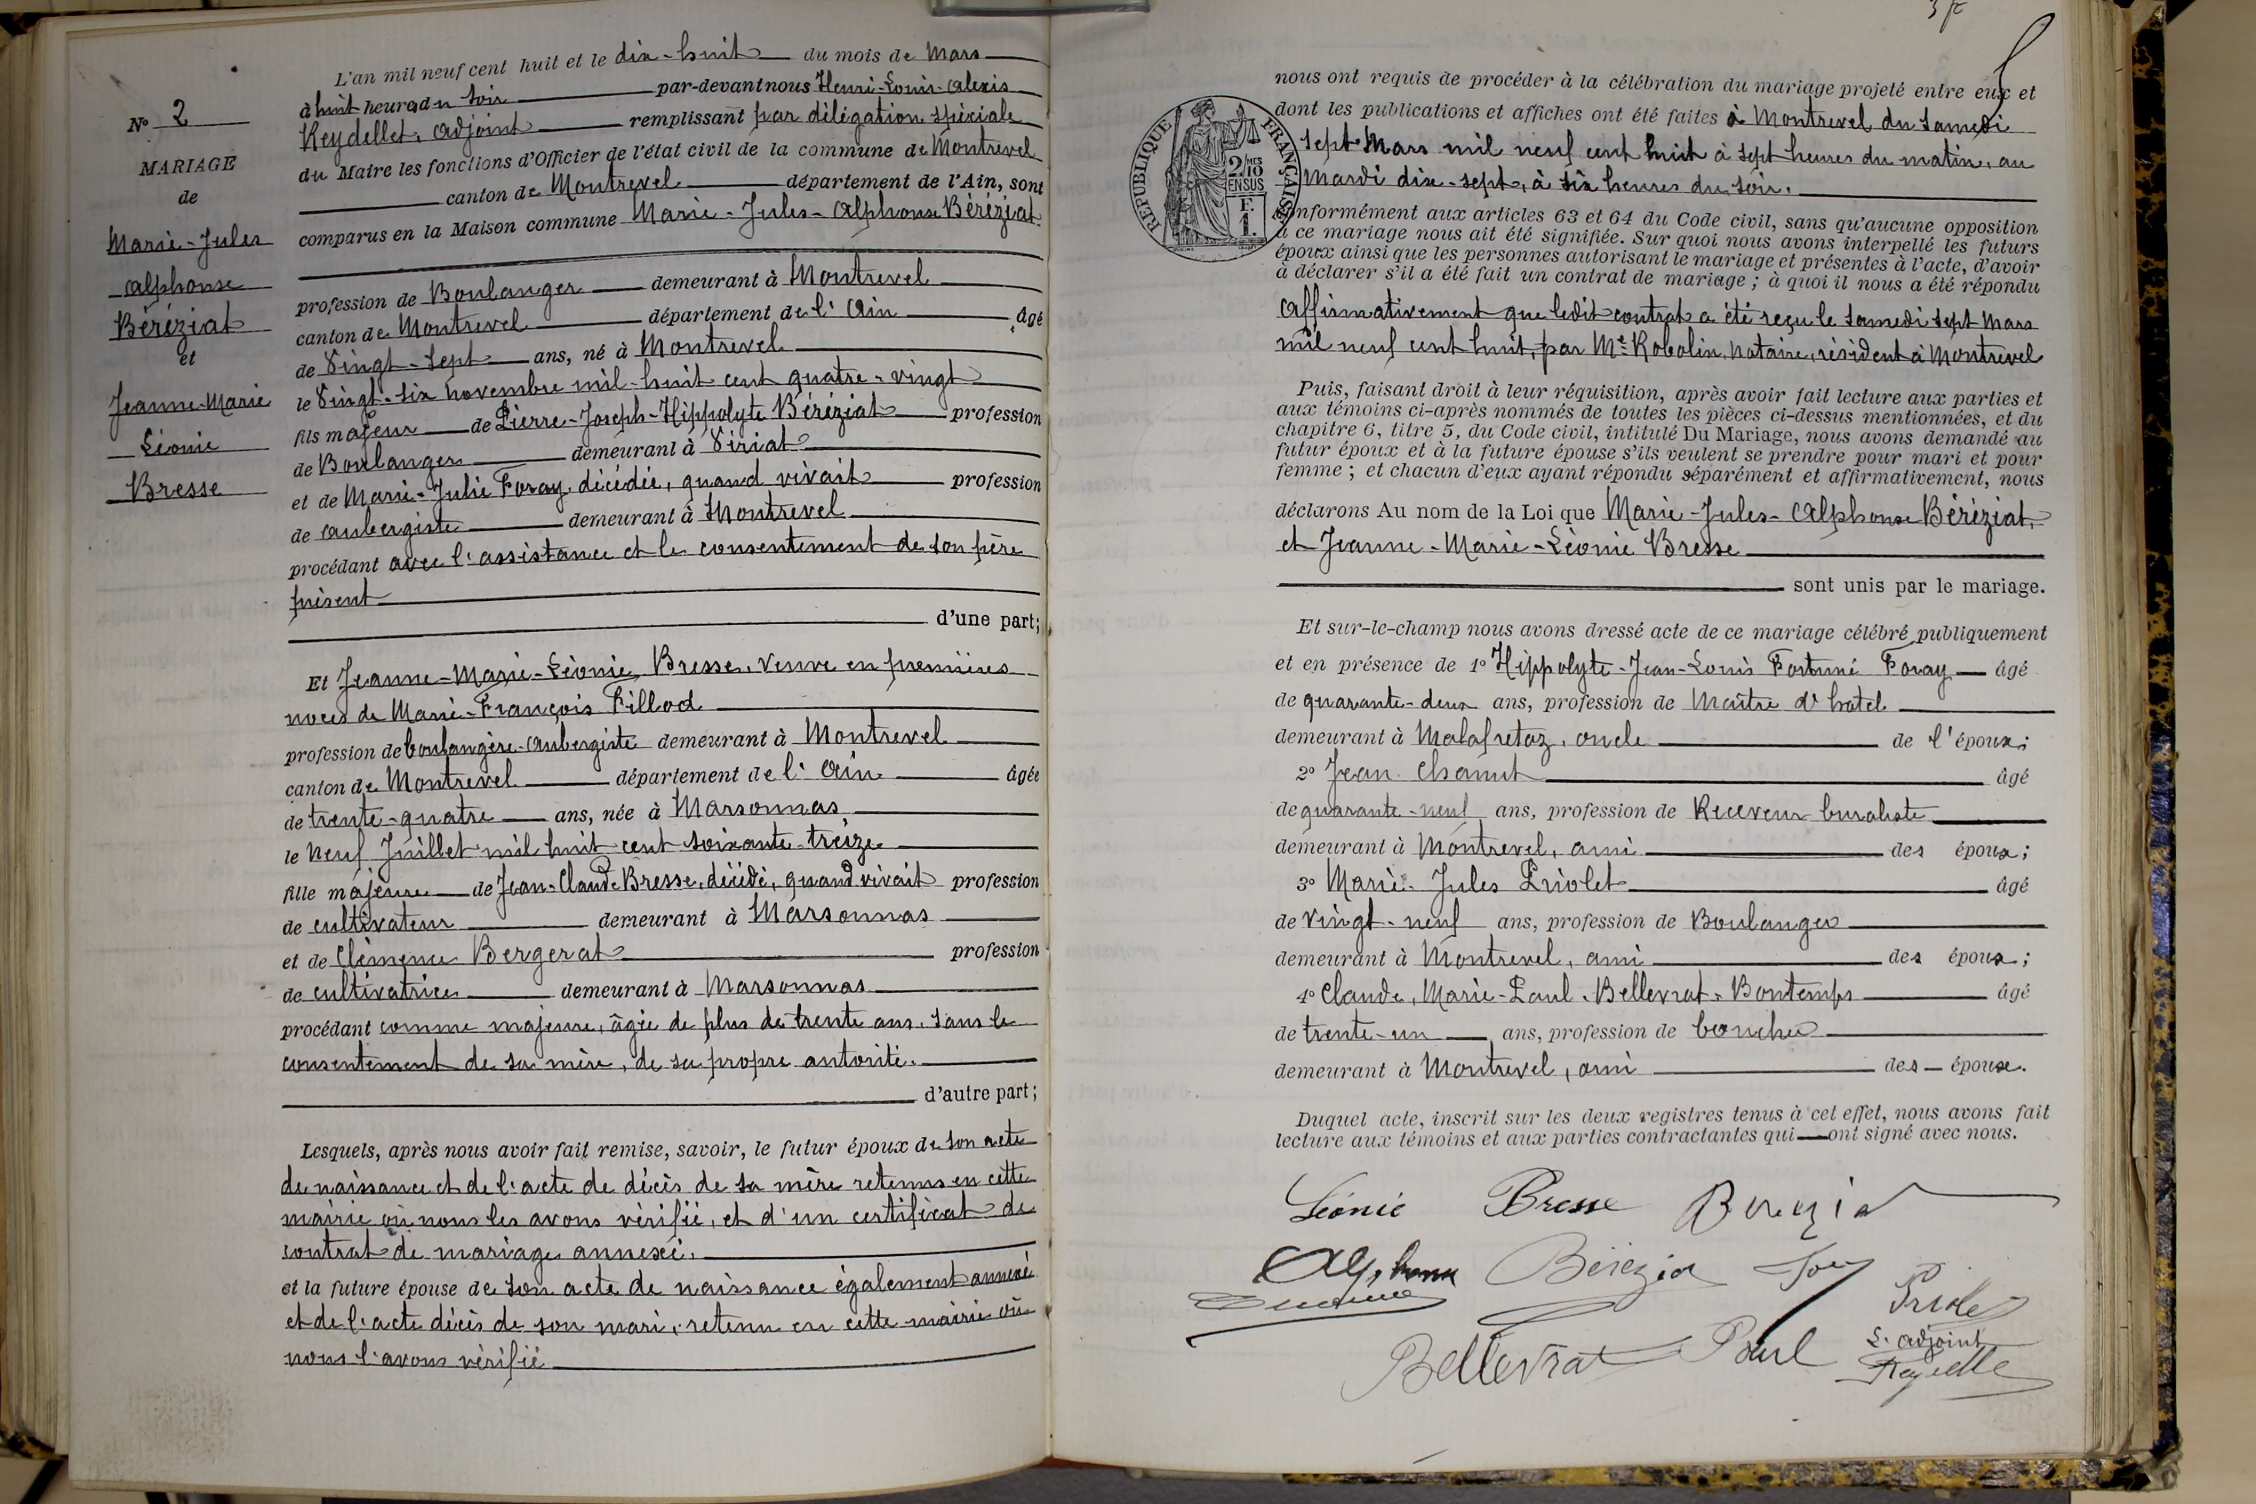 L'an mil neuf cent huit et le dix-huit du mois de Mars
à huit heures du soir par-devant nous Henri-Louis-Alexis
Reydellet, adjoint remplissant par délégation spéciale
du Maire les fonctions d'Officier de l'état civil de la commune de Montrevel
canton de Montrevel département de l'Ain, sont
comparus en la Maison commune Marie-Jules-Alphonse Béréziat
profession de Boulanger demeurant à Montrevel
canton de Montrevel département de l'Ain âgé
de Vingt-sept ans, né à Montrevel
le Vingt-six novembre mil-huit cent quatre-vingt
fils majeur de Pierre-Joseph-Hippolyte Béréziat profession
de Boulanger demeurant à Viriat
et de Marie-Julie Foray, décédée, quand vivait profession
de aubergiste demeurant à Montrevel
procédant avec l'assistance et le consentement de son père
présent
d'une part;
Et Jeanne-Marie-Léonie Bresse, veuve en premières
noces de Marie-François Pillod
profession de boulangère-aubergiste demeurant à Montrevel
canton de Montrevel département de l'Ain âgée
de trente-quatre ans, née à Marsonnas
le neuf Juillet mil huit cent soixante-treize
fille majeure de Jean-Claude Bresse, décédé, quand vivait profession
de cultivateur demeurant à Marsonnas
et de Clémence Bergerat profession
de cultivatrice demeurant à Marsonnas
procédant comme majeure, âgée de plus de trente ans, sans le
consentement de sa mère, de sa propre autorité.
d'autre part;
Lesquels, après nous avoir fait remise, savoir, le futur époux de son acte
de naissance et de l'acte de décès de sa mère retenus en cette
mairie où nous les avons vérifié, et d'un certificat de
contrat de mariage annexé.
et la future épouse de son acte de naissance également annexé
et de l'acte décès de son mari, retenu en cette mairie où
nous l'avons vérifié
N° 2
MARIAGE
de
Marie-Jules
Alphonse
Béréziat
et
Jeanne-Marie
Léonie
Bresse
nous ont requis de procéder à la célébration du mariage projeté entre eux et
dont les publications et affiches ont été faites à Montrevel du samedi
sept Mars mil neuf cent huit à sept heures du matin, au
Mardi dix-sept, à six heures du soir.
Conformément aux articles 63 et 64 du Code civil, sans qu'aucune opposition
à ce mariage nous ait été signifiée. Sur quoi nous avons interpellé les futurs
époux ainsi que les personnes autorisant le mariage et présentes à l'acte, d'avoir
à déclarer s'il a été fait un contrat de mariage ; à quoi il nous a été répondu
affirmativement que ledit contrat a été reçu le samedi sept Mars
mil neuf cent huit, par Me Robolin, notaire, résident à Montrevel
Puis, faisant droit à leur réquisition, après avoir fait lecture aux parties et
aux témoins ci-après nommés de toutes les pièces ci-dessus mentionnées, et du
chapitre 6, titre 5, du Code civil, intitulé Du Mariage, nous avons demandé au
futur époux et à la future épouse s'ils veulent se prendre pour mari et pour
femme ; et chacun d'eux ayant répondu séparément et affirmativement, nous
déclarons Au nom de la Loi que Marie-Jules-Alphonse Béréziat,
et Jeanne-Marie-Léonie Bresse
sont unis par le mariage.
Et sur-le-champ nous avons dressé acte de ce mariage célébré publiquement
et en présence de 1° Hippolyte-Jean-Louis Fortuné Foray âgé
de quarante-deux ans, profession de Maître d'hotel
demeurant à Malafretaz, oncle de l'époux;
2° Jean Chanut âgé
de quarante-neuf ans, profession de Receveur buraliste
demeurant à Montrevel, ami des époux;
3° Marie-Jules Priolet âgé
de vingt-neuf ans, profession de Boulanger
demeurant à Montrevel, ami des époux;
4° Claude, Marie-Paul-Bellevrat-Bontemps âgé
de trente-un ans, profession de boucher
demeurant à Montrevel, ami des époux.
Duquel acte, inscrit sur les deux registres tenus à cet effet, nous avons fait
lecture aux témoins et aux parties contractantes qui ont signé avec nous.
RÉPUBLIQUE FRANÇAISE
2/10 MES
EN SUS
F.
1.
Léonie Bresse Bereziat
Alphonse Béréziat Foray
Priolet
Bellevrat Paul
L'adjoint
Reydellet